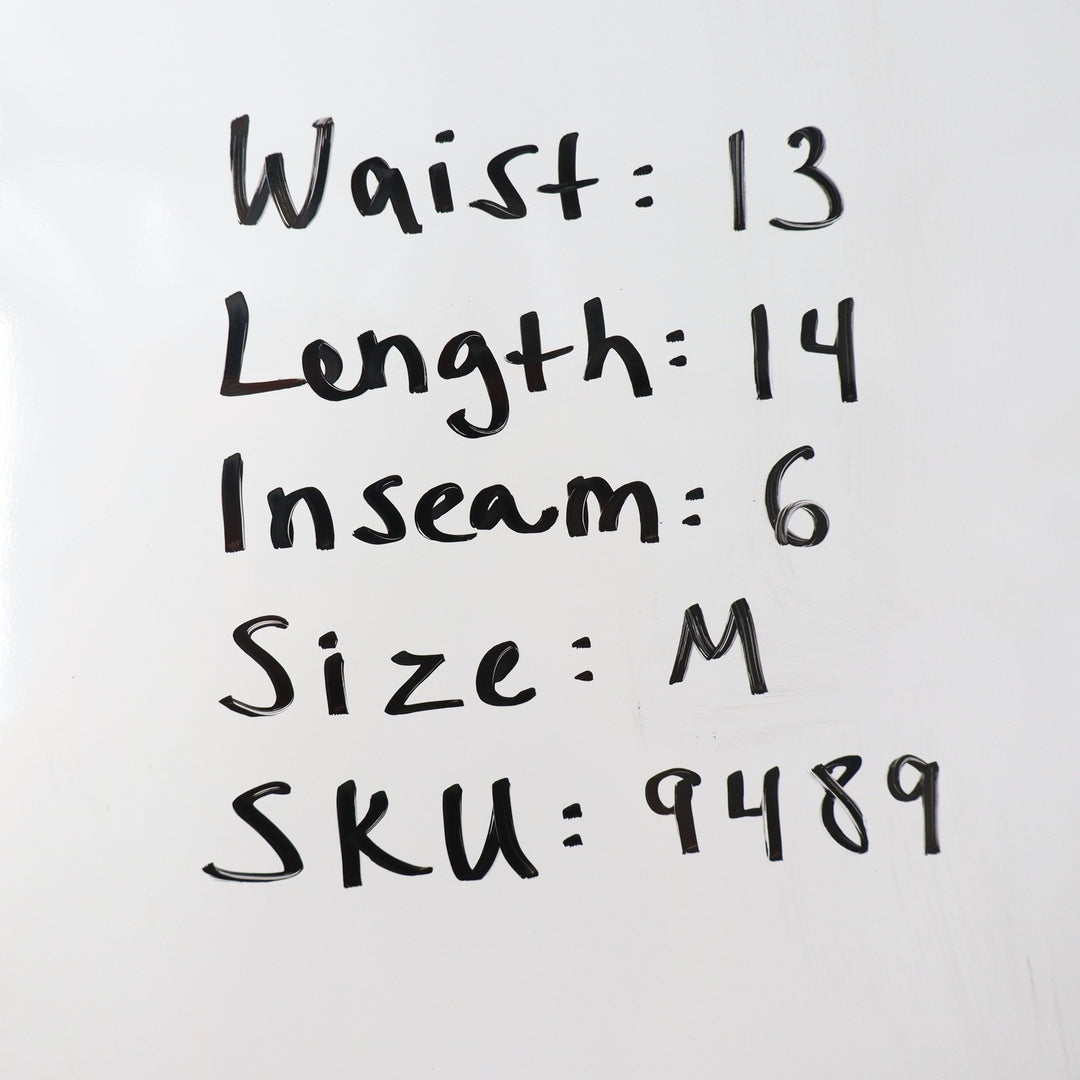 Waist: 13
Length: 14
Inseam: 6
Size: M
SKU: 9489